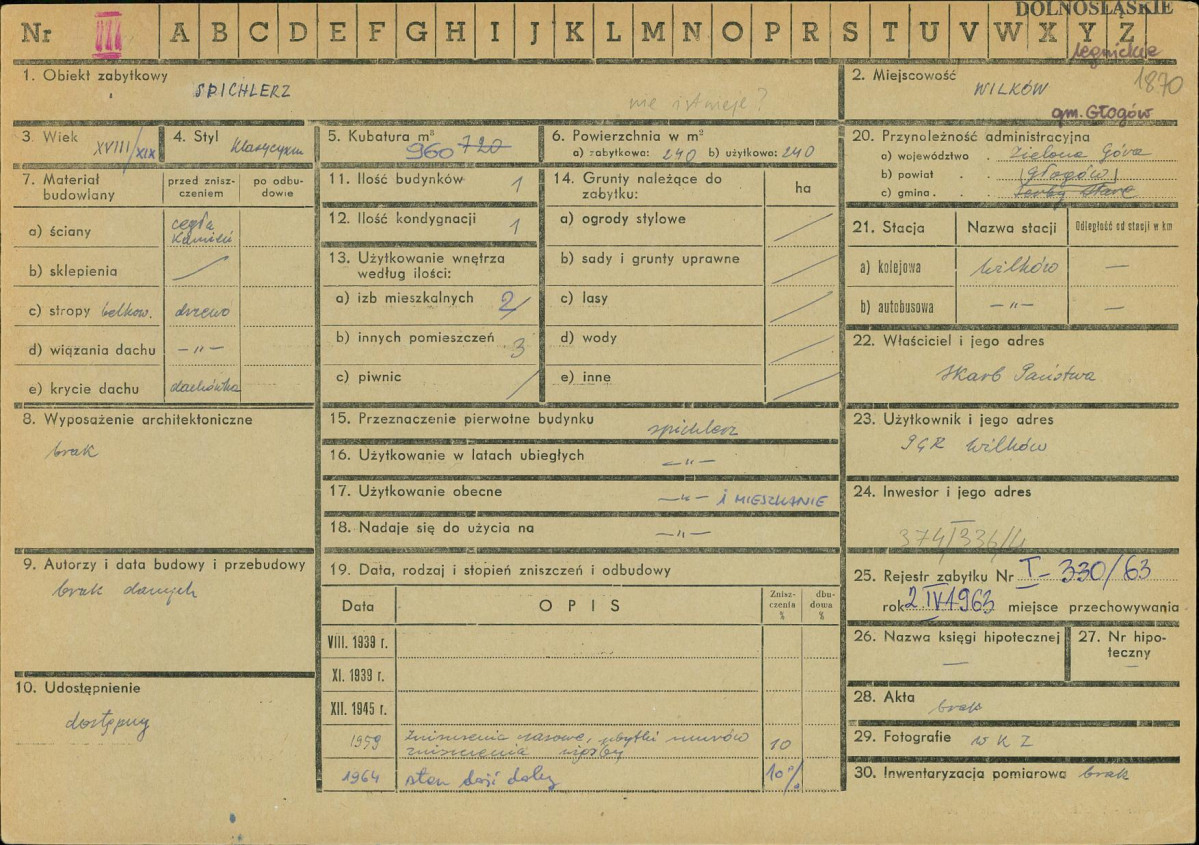 DOLNOŚLĄSKIE
Nr III A B C D E F G H I J K L M N O P R S T U V W X Y Z
legnickie
1. Obiekt zabytkowy
SPICHLERZ
nie istnieje?
2. Miejscowość
1870
WILKÓW
gm. Głogów
3. Wiek XVIII/XIX
4. Styl Klasycyzm
5. Kubatura m³
960 720
6. Powierzchnia w m²
a) zabytkowa: 240 b) użytkowa: 240
20. Przynoleżność administracyjna
a) województwo . Zielona Góra
b) powiat . . (Głogów)
c) gmina . . Serby Stare
7. Materiał budowlany
przed znisz-
czeniem
po odbu-
dowie
a) ściany cegła
kamień
b) sklepienia
c) stropy belkow. drzewo
d) wiązania dachu —„—
e) krycie dachu dachówka
11. Ilość budynków 1
12. Ilość kondygnacji 1
13. Użytkowanie wnętrza
według ilości:
a) izb mieszkalnych 2
b) innych pomieszczeń 3
c) piwnic /
14. Grunty należące do
zabytku:
ha
a) ogrody stylowe
b) sady i grunty uprawne
c) lasy
d) wody
e) inne
21. Stacja
Nazwa stacji
Odległość od stacji w km
a) kolejowa Wilków —
b) autobusowa —„— —
22. Właściciel i jego adres
Skarb Państwa
8. Wyposażenie architektoniczne
brak
15. Przeznaczenie pierwotne budynku
spichlerz
16. Użytkowanie w latach ubiegłych
—„—
17. Użytkowanie obecne
—„— i MIESZKANIE
18. Nadaje się do użycia na
—„—
23. Użytkownik i jego adres
PGR Wilków
24. Inwestor i jego adres
374/336/4
9. Autorzy i data budowy i przebudowy
brak danych
19. Data, rodzaj i stopień zniszczeń i odbudowy
Data
OPIS
Znisz-
czenia
%
dbu-
dowa
%
VIII. 1939 r.
XI. 1939 r.
XII. 1945 r.
1959 Zniszczenia czasowe, ubytki murów
zniszczenia więźby 10
1964 stan dość dobry 10%
25. Rejestr zabytku Nr I-330/63
rok 2 IV 1963 miejsce przechowywania
26. Nazwa księgi hipotecznej
—
27. Nr hipo-
teczny
—
10. Udostępnienie
dostępny
28. Akta
brak
29. Fotografie W K Z
30. Inwentaryzacja pomiarowa brak